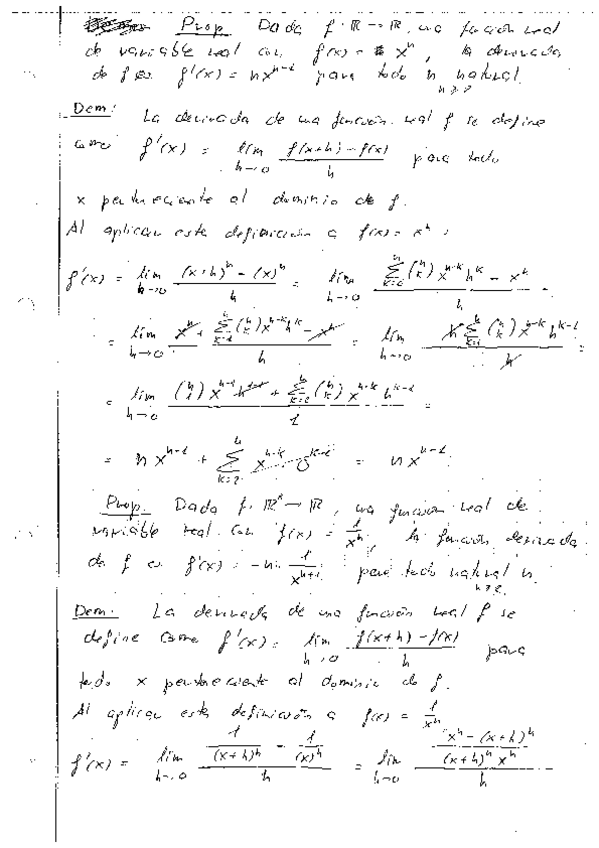 Prop. Dada f: ℝ → ℝ, una función real
de variable real con f(x) = xⁿ, la derivada
de f es f'(x) = nxⁿ⁻¹ para todo n natural.
n ≥ 2
Dem: La derivada de una función real f se define
como f'(x) = lim_{h→0} (f(x+h) − f(x))/h para todo
x perteneciente al dominio de f.
Al aplicar esta definición a f(x) = xⁿ:
f'(x) = lim_{h→0} ((x+h)ⁿ − (x)ⁿ)/h = lim_{h→0} (∑_{k=0}^{n} (n k) xⁿ⁻ᵏ hᵏ − xⁿ)/h =
= lim_{h→0} (xⁿ + ∑_{k=1}^{n} (n k) xⁿ⁻ᵏ hᵏ − xⁿ)/h = lim_{h→0} (h ∑_{k=1}^{n} (n k) xⁿ⁻ᵏ hᵏ⁻¹)/h =
= lim_{h→0} ((n 1) xⁿ⁻¹ h¹⁻¹ + ∑_{k=2}^{n} (n k) xⁿ⁻ᵏ hᵏ⁻¹)/1 =
= n xⁿ⁻¹ + ∑_{k=2}^{n} xⁿ⁻ᵏ 0ᵏ⁻¹ = nxⁿ⁻¹.
Prop. Dada f: ℝ* → ℝ, una función real de
variable real con f(x) = 1/xⁿ, la función derivada
de f es f'(x) = −n · 1/xⁿ⁺¹ para todo natural n.
n ≥ 2
Dem. La derivada de una función real f se
define como f'(x) = lim_{h→0} (f(x+h) − f(x))/h para
todo x perteneciente al dominio de f.
Al aplicar esta definición a f(x) = 1/xⁿ
f'(x) = lim_{h→0} (1/(x+h)ⁿ − 1/(x)ⁿ)/h = lim_{h→0} ((xⁿ − (x+h)ⁿ)/((x+h)ⁿ xⁿ))/h =